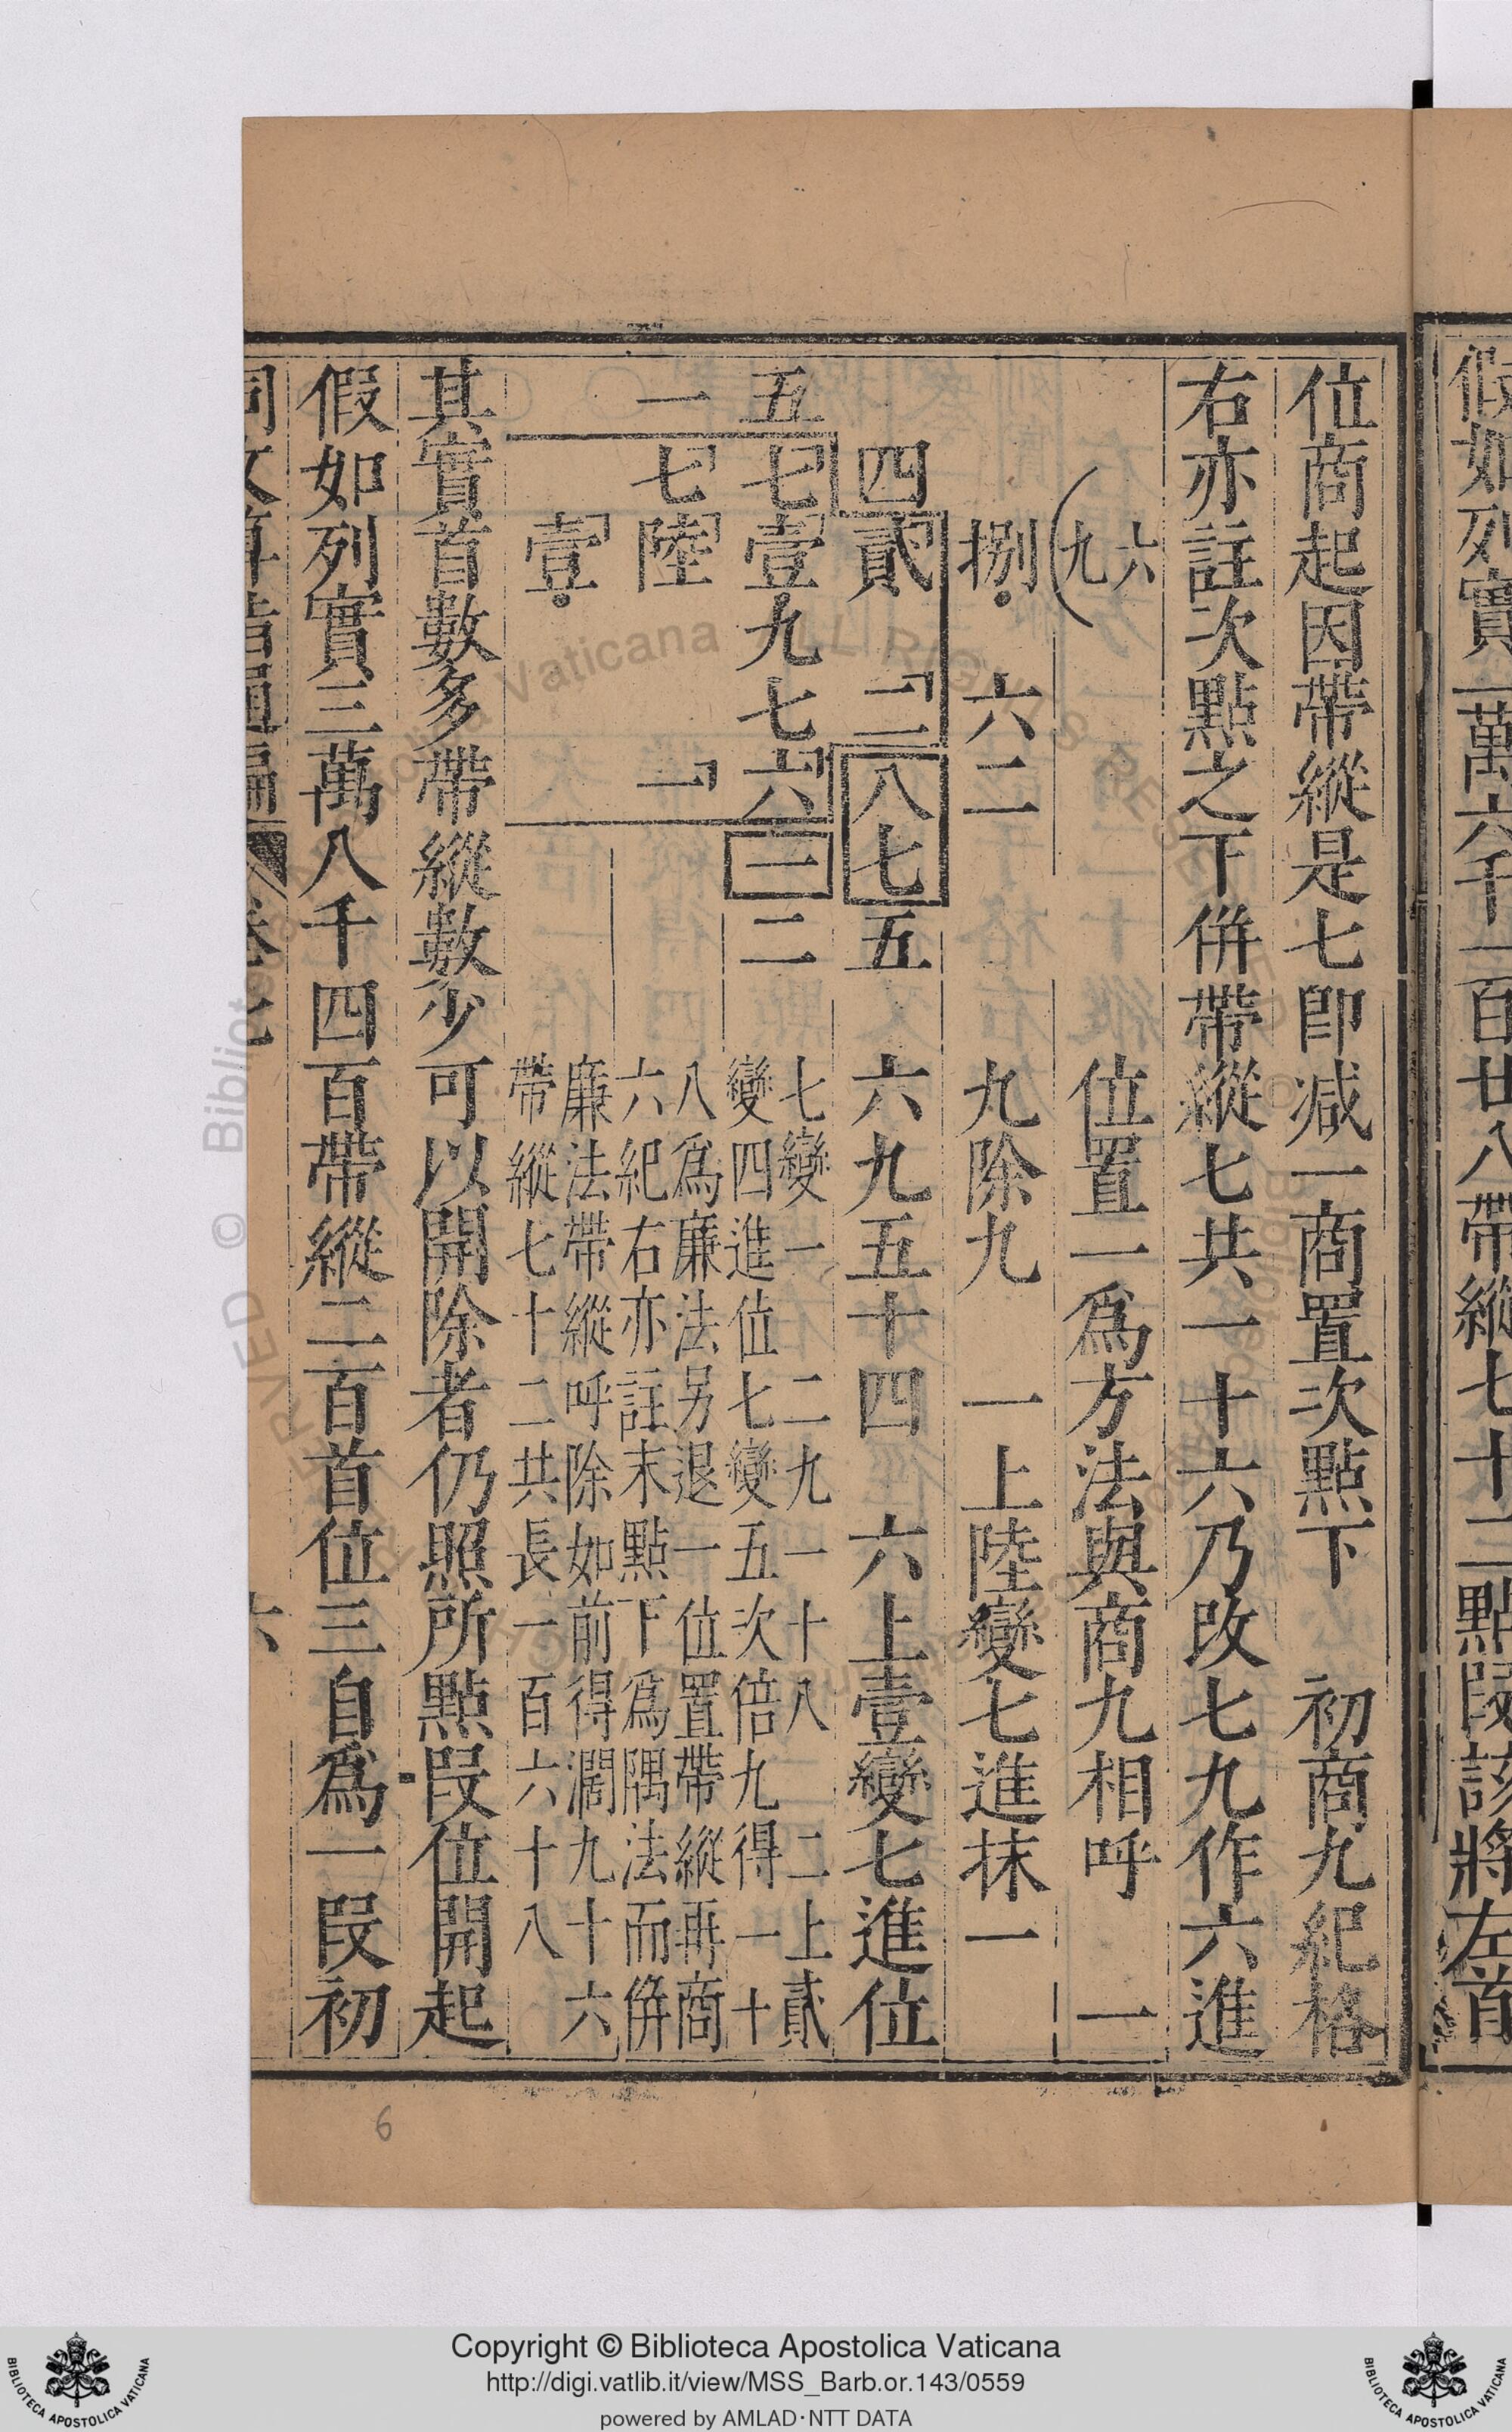 假如列實一萬六千一百廿八帶縱七十二點叚該將左首
位商起因帶縱是七卽减一商置次點下　初商九紀格
右亦註次點之下倂帶縱七共一十六乃改七九作六進
六
九
位置一爲方法與商九相呼　一
捌　六二
九除九　一上陸變七進抹一
四貳　二八七五
六九五十四　六上壹變七進位
五七壹九七六三二
七變一二九一十八二上貳
變四進位七變五次倍九得一十
一七陸　一
八爲廉法另退一位置帶縱再商
六紀右亦註末點下爲隅法而倂
壹
廉法帶縱呼除如前得濶九十六
帶縱七十二共長一百六十八
其實首數多帶縱數少可以開除者仍照所點叚位開起
假如列實三萬八千四百帶縱二百首位三自爲一叚初
同文算指通編　卷七　六
6
© Biblioteca Apostolica Vaticana
Copyright © Biblioteca Apostolica Vaticana
http://digi.vatlib.it/view/MSS_Barb.or.143/0559
powered by AMLAD·NTT DATA
BIBLIOTECA APOSTOLICA VATICANA
BIBLIOTECA APOSTOLICA VATICANA